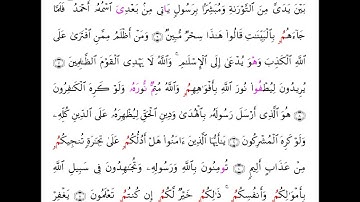 بَيْنَ يَدَىَّ مِنَ ٱلتَّوْرَىٰةِ وَمُبَشِّرًۢا بِرَسُولٍ يَاتِى مِنۢ بَعْدِىَ ٱسْمُهُۥٓ أَحْمَدُ فَلَمَّا
جَآءَهُمُۥ بِٱلْبَيِّنَٰتِ قَالُوا۟ هَٰذَا سِحْرٌ مُّبِينٌ وَمَنْ أَظْلَمُ مِمَّنِ ٱفْتَرَىٰ عَلَى
ٱللَّهِ ٱلْكَذِبَ وَهْوَ يُدْعَىٰٓ إِلَى ٱلْإِسْلَٰمِ وَٱللَّهُ لَا يَهْدِى ٱلْقَوْمَ ٱلظَّٰلِمِينَ
يُرِيدُونَ لِيُطْفُوا۟ نُورَ ٱللَّهِ بِأَفْوَٰهِهِمُۥ وَٱللَّهُ مُتِمٌّ نُورَهُۥ وَلَوْ كَرِهَ ٱلْكَٰفِرُونَ
هُوَ ٱلَّذِىٓ أَرْسَلَ رَسُولَهُۥ بِٱلْهُدَىٰ وَدِينِ ٱلْحَقِّ لِيُظْهِرَهُۥ عَلَى ٱلدِّينِ كُلِّهِۦ
وَلَوْ كَرِهَ ٱلْمُشْرِكُونَ يَٰٓأَيُّهَا ٱلَّذِينَ ءَامَنُوا۟ هَلْ أَدُلُّكُمُۥ عَلَىٰ تِجَٰرَةٍ تُنجِيكُمُۥ
مِنْ عَذَابٍ أَلِيمٍ تُومِنُونَ بِٱللَّهِ وَرَسُولِهِۦ وَتُجَٰهِدُونَ فِى سَبِيلِ ٱللَّهِ
بِأَمْوَٰلِكُمُۥ وَأَنفُسِكُمُۥ ذَٰلِكُمُۥ خَيْرٌ لَّكُمُۥ إِن كُنتُمُۥ تَعْلَمُونَ يَغْفِرْ